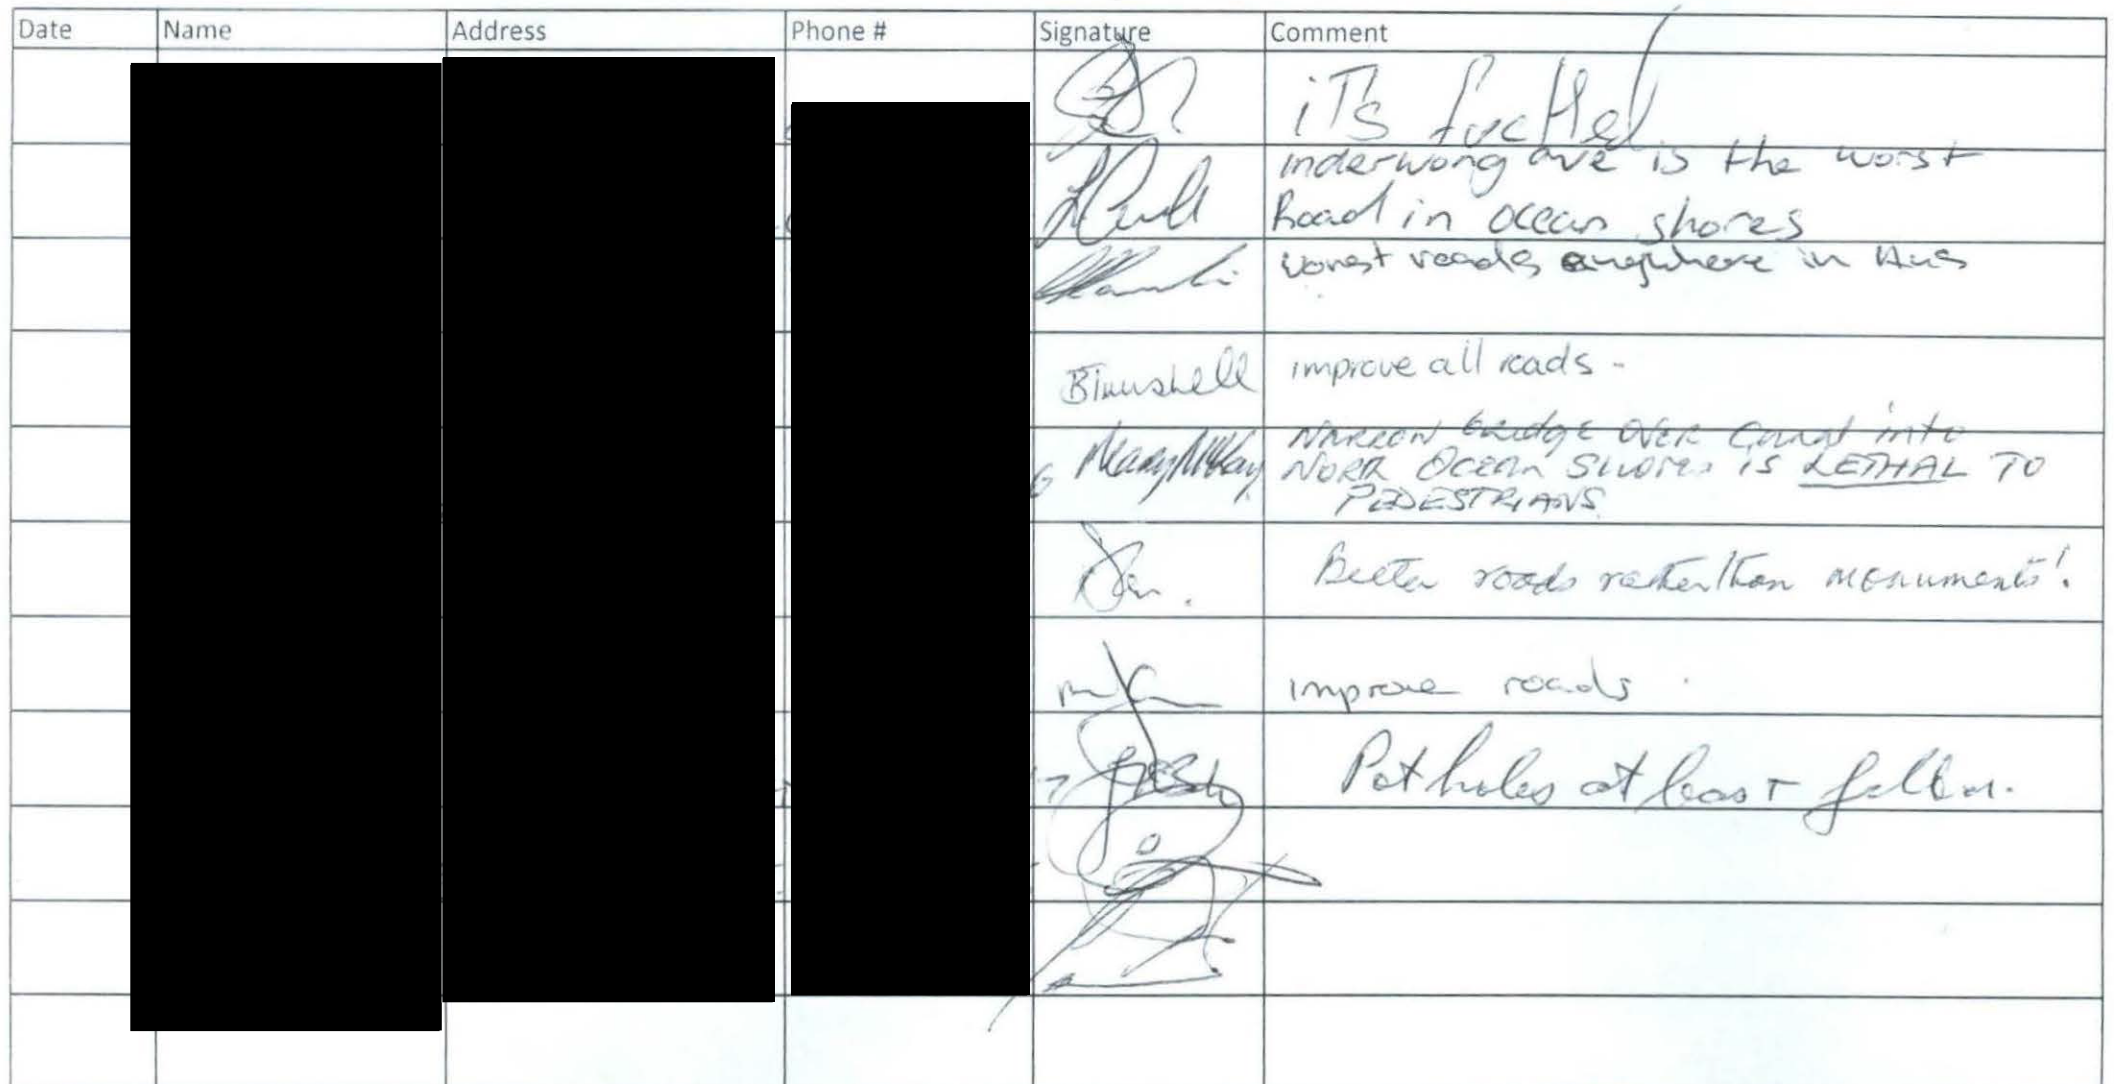 Date Name Address Phone # Signature Comment
iTs fucked
inderwong ave is the worst
Road in ocean shores
worst roads anywhere in Aus
improve all roads -
NARROW bridge OVER Canal into
NORTH OCEAN SHORES IS LETHAL TO
PEDESTRIANS
Better roads rather than monuments!
improve roads.
Pot holes at least